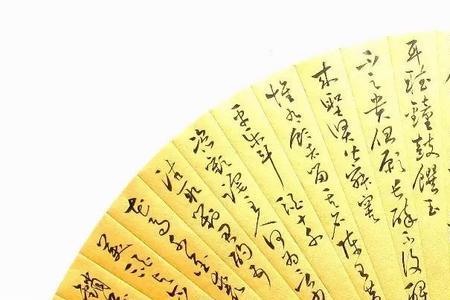 耳聽鐘鼓饌玉
不足貴但願長醉不復醒
來聖賢皆寂寞
惟有飲者留其名陳王
平樂斗酒十千
恣歡謔主人何為言
沽取對君酌五
花馬千金裘
美酒與
銷